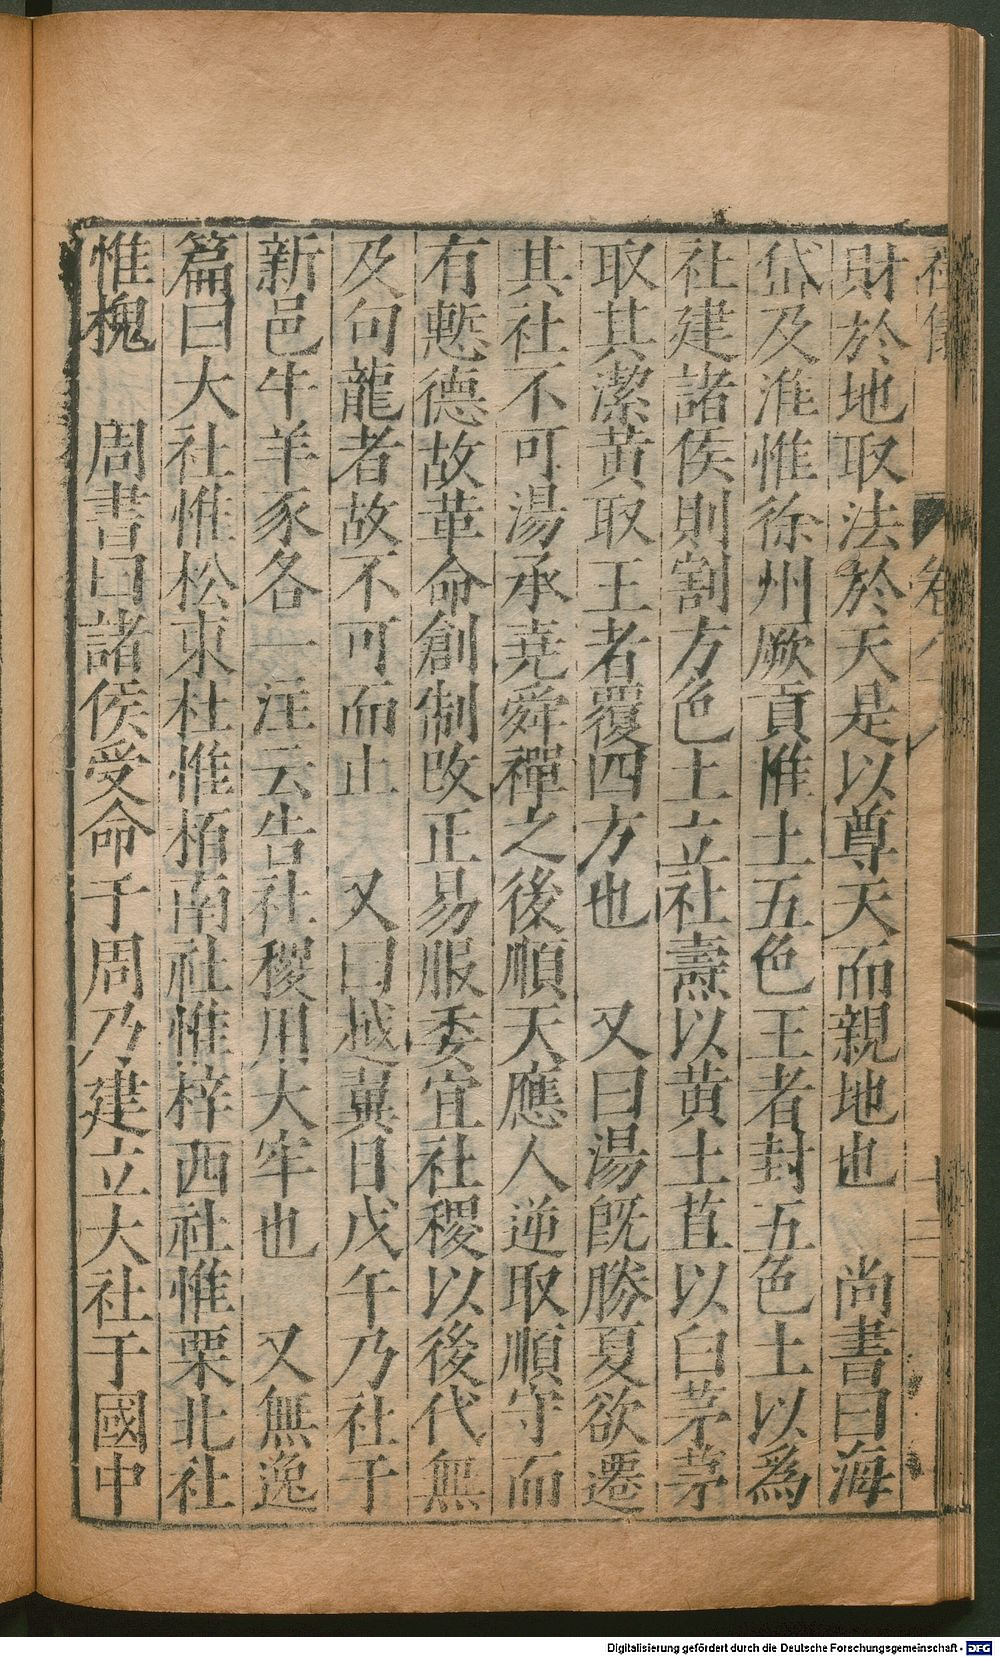 財於地取法於天是以尊天而親地也　尚書曰海
岱及淮惟徐州厥貢惟土五色王者封五色土以爲
社建諸侯則割方色土立社燾以黃土苴以白茅茅
取其潔黃取王者覆四方也　又曰湯旣勝夏欲遷
其社不可湯承堯舜禪之後順天應人逆取順守而
有慙德故革命創制改正易服委宜社稷以後代無
及句龍者故不可而止　又曰越翼日戊午乃社于
新邑牛羊豕各一注云告社稷用大牢也　又無逸
篇曰大社惟松東社惟栢南社惟梓西社惟栗北社
惟槐　周書曰諸侯受命于周乃建立大社于國中
Digitalisierung gefördert durch die Deutsche Forschungsgemeinschaft - DFG